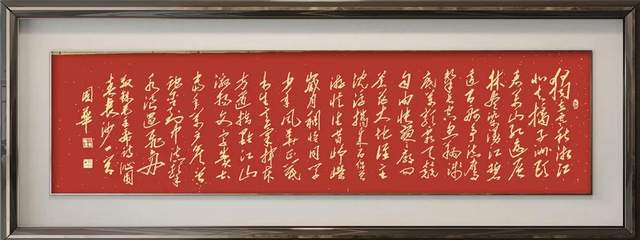 独立寒秋湘江
北去橘子洲头
看万山红遍层
林尽染漫江碧
透百舸争流鹰
击长空鱼翔浅
底万类霜天竞
自由怅寥廓问
苍茫大地谁主
沉浮携来百侣曾
游忆往昔峥嵘
岁月稠恰同学
少年风华正茂
书生意气挥斥
方遒指点江山
激扬文字粪土
当年万户侯曾
记否到中流击
水浪遏飞舟
沁园
春长沙一首
国华